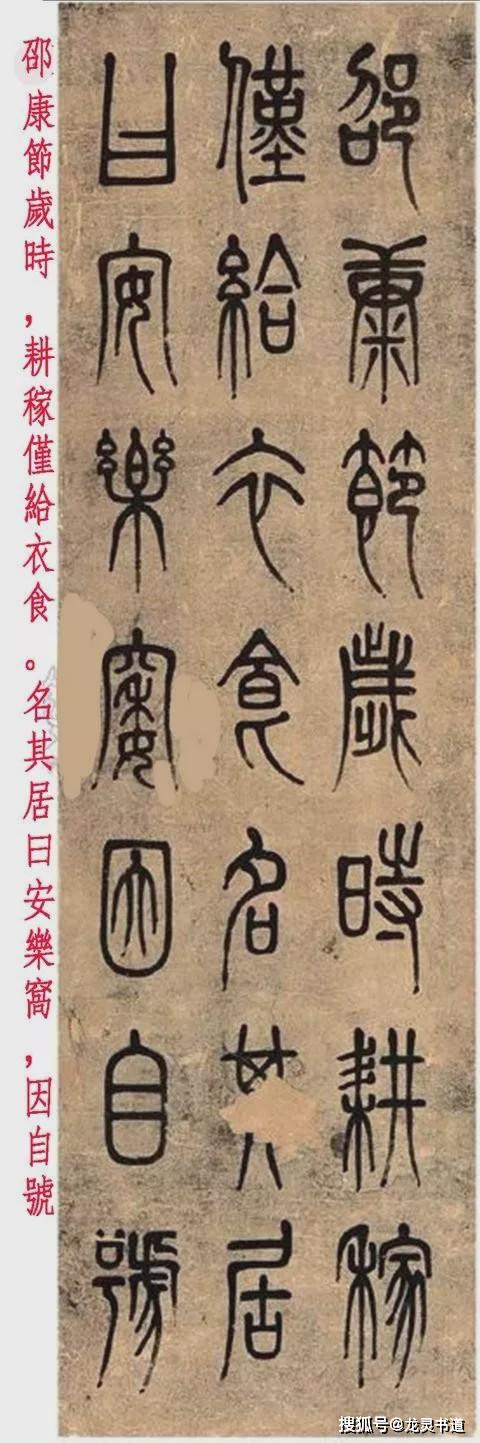 邵康節歲時耕稼
僅給衣食名其居
曰安樂窩因自號
邵康節歲時，耕稼僅給衣食。名其居曰安樂窩，因自號
搜狐号@龙灵书道